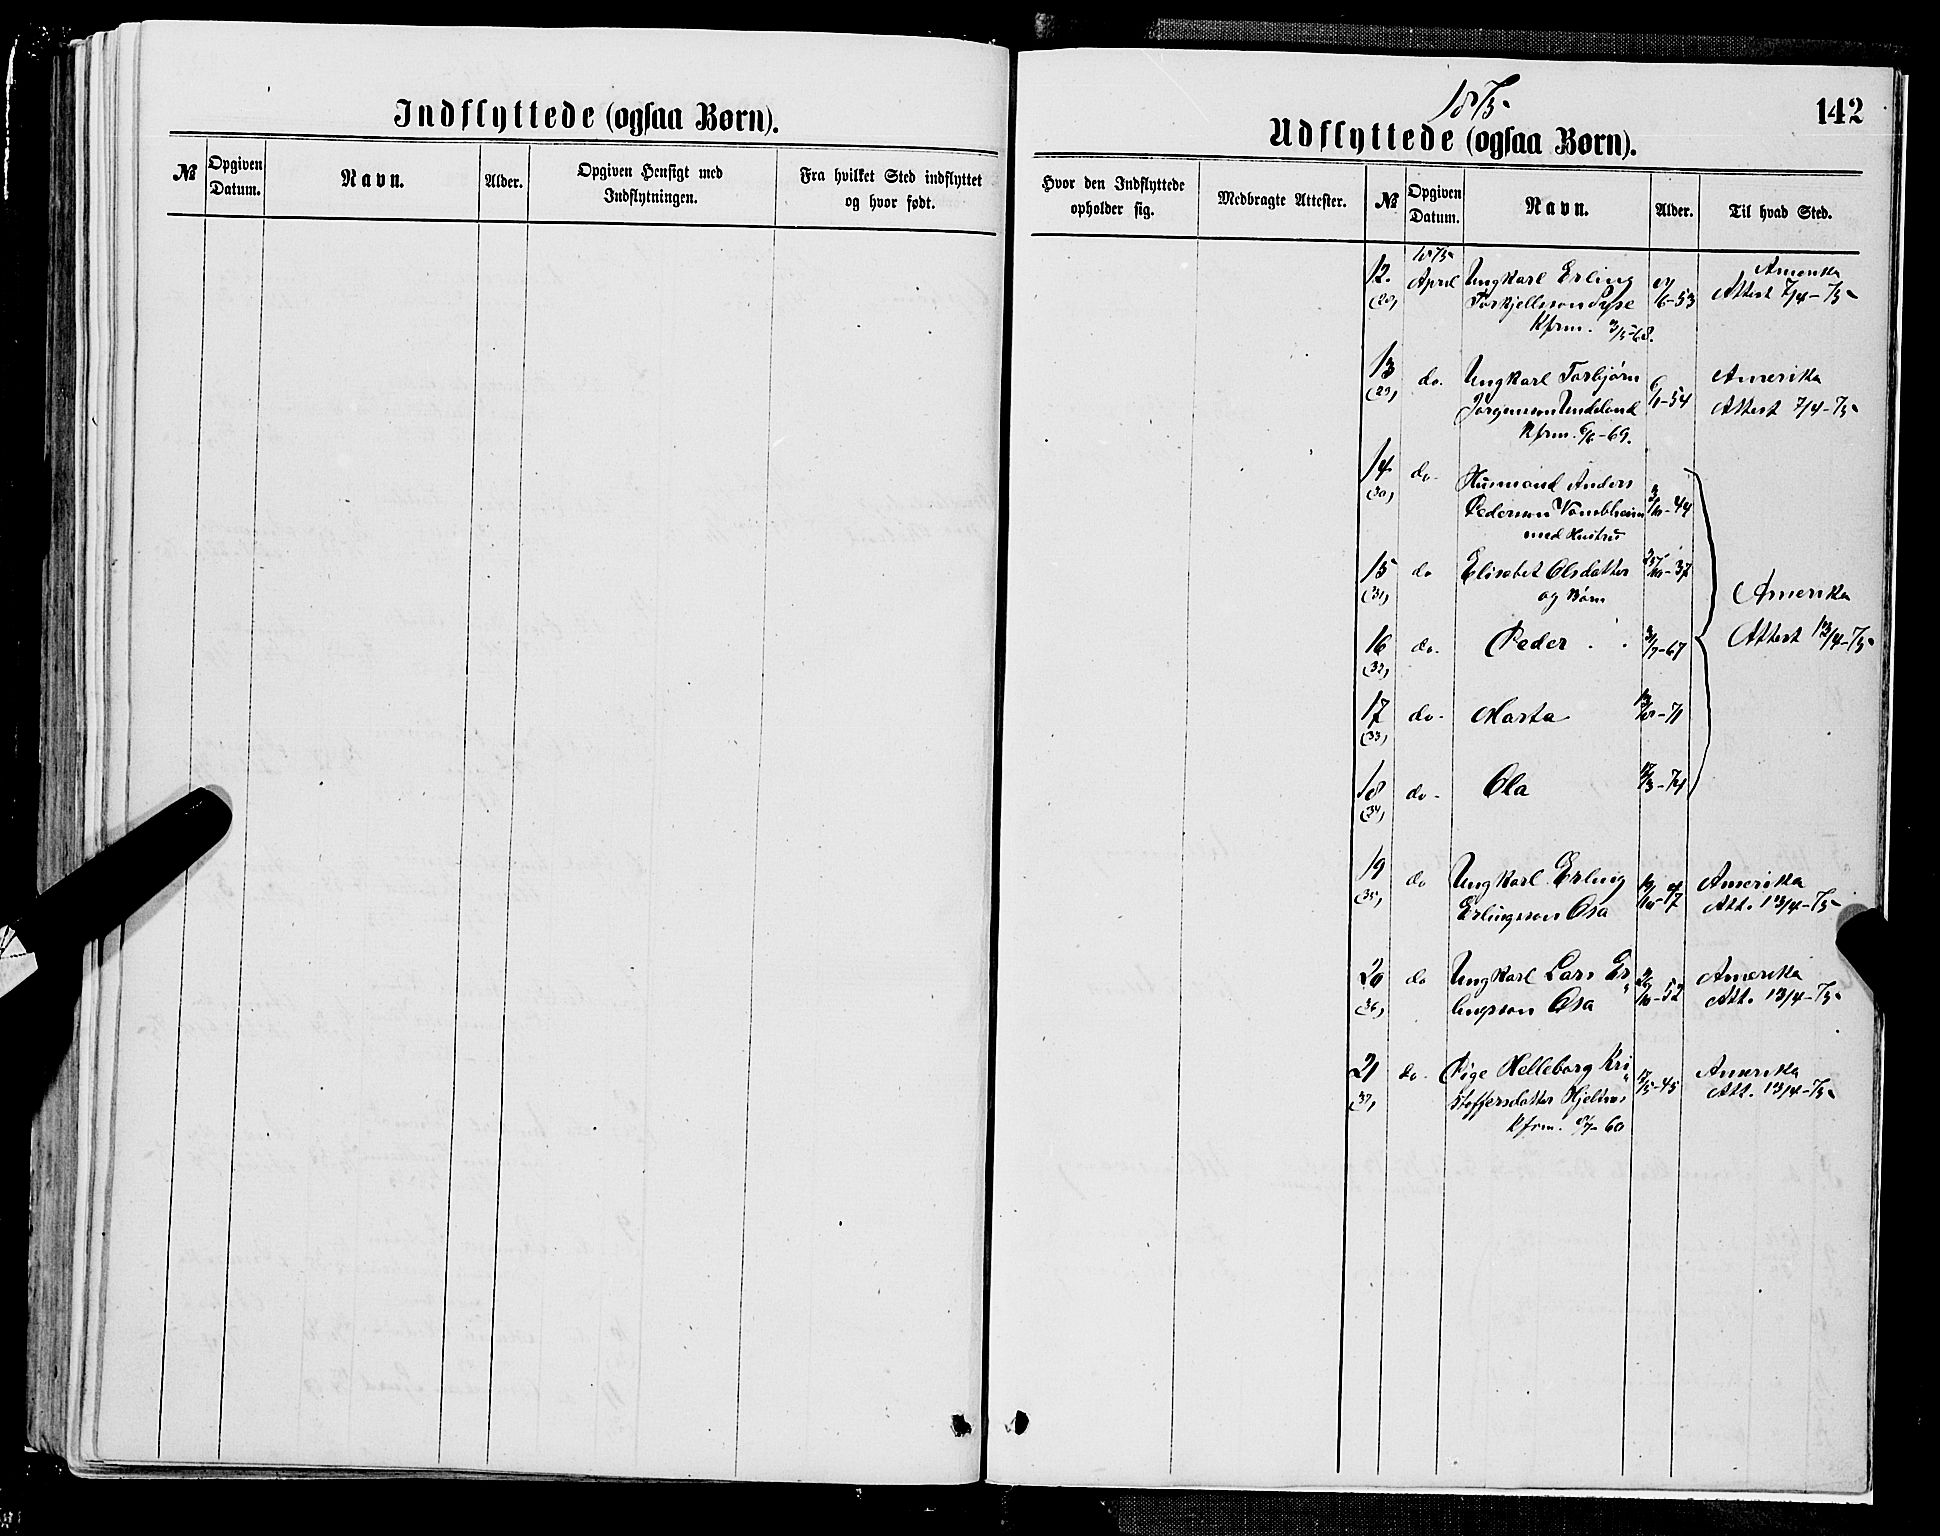 Indflyttede (ogsaa Børn).
№
Opgiven
Datum.
Navn.
Alder.
Opgiven Hensigt med
Indflytningen.
Fra hvilket Sted indflyttet
og hvor født.
1875
142
Udflyttede (ogsaa Børn).
Hvor den Indflyttede
opholder sig.
Medbragte Attester.
№
Opgiven
Datum.
Navn.
Alder.
Til hvad Sted.
1875
12. April Ungkarl Erling /6-53 Amerika
Torkjellsson Attest 7/4-75
Kfrm. 3/5-68.
13 do. Ungkarl Torbjørn -54 Amerika
(29) Jørgensson Undeland Attest 7/4-75
Kfrm. -69.
14 do. Husmand Anders 3/10-44
(30) Pederson
med Hustru
15 do Elisabet Olsdatter 25/10-37 Amerika
(31) og Børn
16 do. Peder 3/7-67 Attest 13/4-75
(32)
17 do. Marta -71
(33)
18 do. Ola 17/3-74
(34)
19 do Ungkarl Erling Amerika
(35) Erlingsson Osa Att. 13/4-75
20 do Ungkarl Lars Er- -52 Amerika
(36) lingsson Osa Att. 13/4-75
21 do. Pige Helleborg Kri- 17/5-45 Amerika
(37) stoffersdatter Hjeltnes Att. 13/4-75
Kfrm. -60